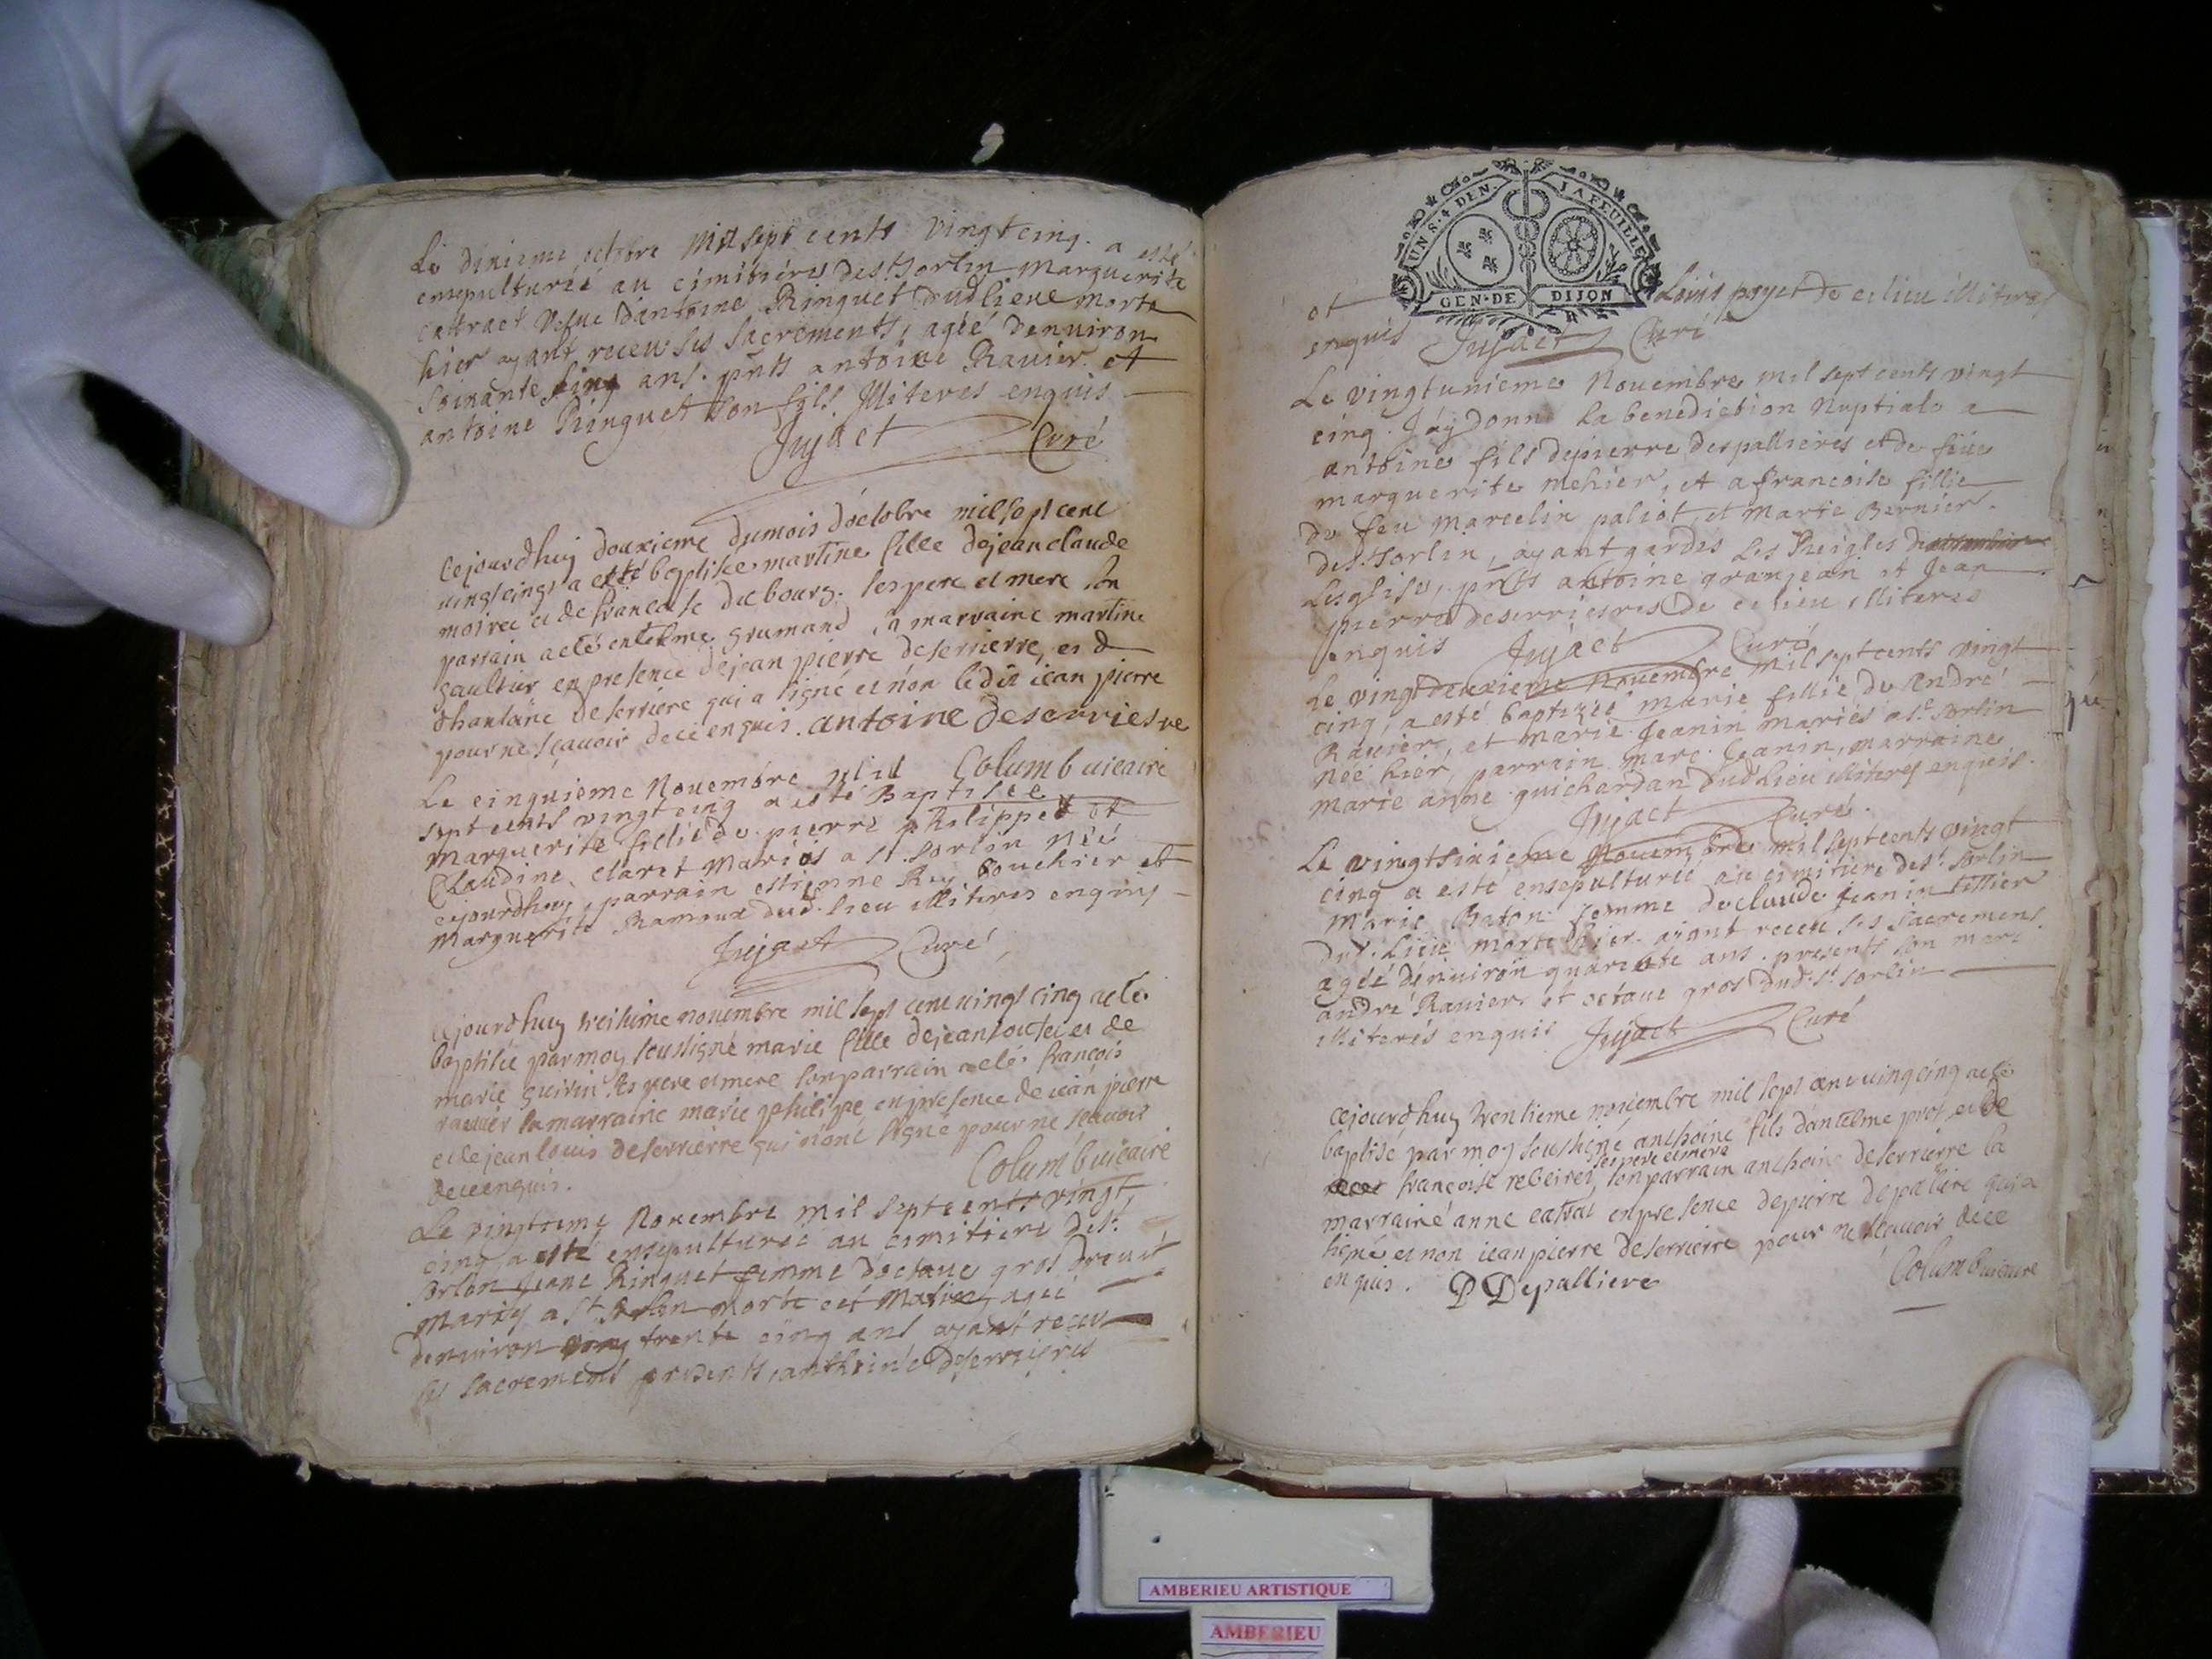 Le dixieme octobre mil sept cents vingtcinq. a esté
ensepulturéé au cimitiere de st Sorlin Marguerite
cattract vefue dantoine Ringuet dud lieue morte
hier ayant receu ses sacrements, agéé denuiron
soixante cinq ans. pnts antoine Rauier et
antoine Ringuet son fils Illiteres enquis
Jujact Curé
Cejourdhuy douxieme dumois doctobre mil sept cent
uingtcinq a esté baptisée martine fille dejeanclaude
moiree et de francoise du bourg. ses pere et mere son
parrain a eté entelme grumand, sa marraine martine
gaultier en presence dejean pierre deserriere, et d
Anthoine deserriere qui a signé et non ledit jean pierre
pour ne sçauoir de ce enquis. antoine deserriesre
Columb uicaire
Le cinquieme Nouembre mil
sept cents vingtcinq a esté Baptisée
Marguerite fillie de pierre philippe et
Claudine claret Mariés a st. Sorlin néé
cejourdhuy, parrain estienne Rey Bouchier et
Marguerite Ramoux dud. lieu illiteres enquis
Jujact Curé
cejourdhuy treisieme nouembre mil sept cent uingt cinq a eté
baptisée par moy soussigné marie fille dejean et de
marie guirin ses pere et mere son parrain a eté francois
rauier sa marraine marie philippe en presence de jean pierre
et de jean louis deserrierre qui n'ont signé pour ne sçauoir
de ce enquis. Columb uicaire
Le vingtieme Nouembre mil septcents vingt
cinq a esté ensepulturéé au cimitiere de st.
Sorlin Jeane Ringuet femme doctaue gros
Mariés a st. Sorlin morte cet Matin, agéé
denuiron trente cinq ans ayant receu
ses sacrements presents, anthoine deserrieres
et Louis payet de ce lieu illiteres
enquis Jujact Curé
UN S. 4 DEN. LA FEUILLE
GEN. DE DIJON
Le vingtunieme Nouembre mil sept cents vingt
cinq. Jáy donné la benediction Nuptiale a
antoine fils de pierre despallieres et de feüe
marguerite mehier, et a francoise fillie
de feu Marcelin paliot, et Marie Bernier.
de st. Sorlin, ayant gardés les Reigles de
Lesglise, pnts antoine granjean et Jean
pierre deserriesres de ce lieu illiteres
enquis Jujact Curé
Le vingtdeuxieme Nouembre mil septcents vingt
cinq, a esté baptizéé marie fillie de André
Rauier, et Marie Jeanin mariés a st. Sorlin
Néé hier, parrain Marc Jeanin, marraine
marie anne guichardan dud lieu illiteres enquis.
Jujact Curé.
Le vingtsixieme Nouembre mil septcents vingt
cinq a esté ensepulturéé au cimitiere de st. Sorlin
Marie Baton femme de claude Jeanin tissier
dud. Lieu morte hier ayant receu ses sacremens
agéé denuiron quarante ans. presents son mari
andré Rauier et octaue gros dud. st. Sorlin
illiterés enquis Jujact Curé
Cejourdhuy trentieme nouembre mil sept cent uingcinq a eté
baptisé par moy soussigné anthoine fils dantelme prost et de
francoise rebeirei, ses pere et mere son parrain anthoine deserrierre la
marraine anne en presence de pierre depaliere qui a
signé et non jean pierre deserrierre pour ne sçauoir de ce
enquis. P Depalliere Columb uicaire
AMBERIEU ARTISTIQUE
AMBERIEU